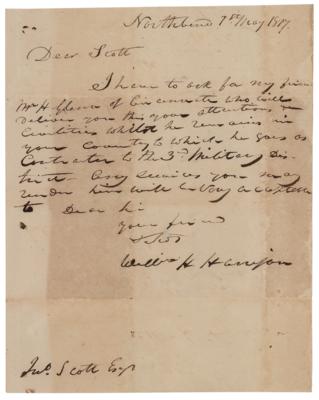 Northbend 7th May 1817.
Dear Scott
I have to ask for my friend
Mr H. Glenn of Cincinnati who will
deliver you this your attentions &
Civilities whilst he remains in
your Country to which he goes as
Contractor to the 3d Military Dis-
trict Any services you may
render him will be very acceptable
to Dear Sir
your friend
Willm H Harrison
Jno. Scott Esqr